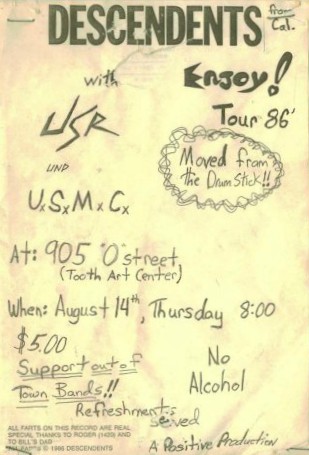 DESCENDENTS from Cal.
with Enjoy!
Tour 86'
USR
UND
U.S.M.C.
Moved from
the DrumStick!!
At: 905 "O" street
(Tooth Art Center)
When: August 14th, Thursday 8:00
$5.00
Support out of
Town Bands!!
No
Alcohol
Refreshments
Served
A Positive Production
ALL FARTS ON THIS RECORD ARE REAL
SPECIAL THANKS TO ROGER (1420) AND
TO BILL'S DAD
© 1986 DESCENDENTS